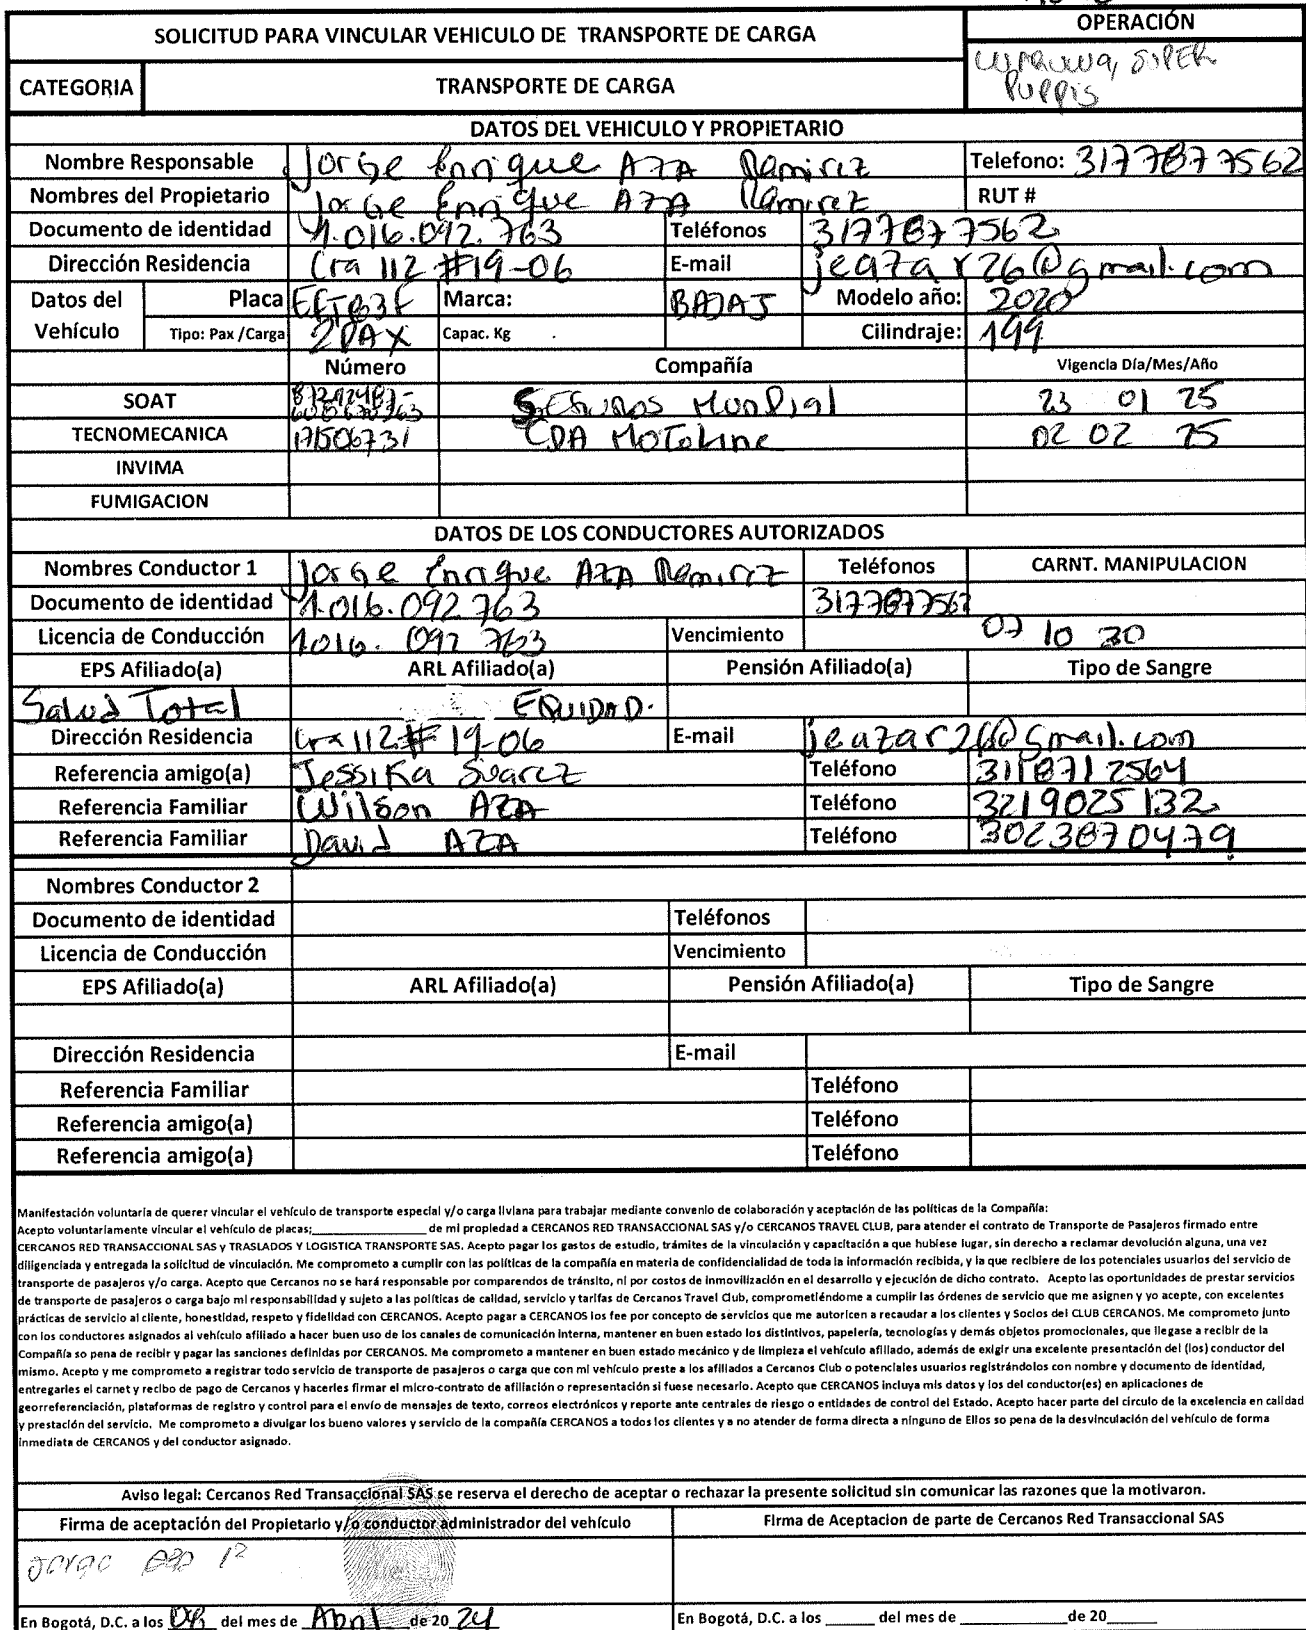 SOLICITUD PARA VINCULAR VEHICULO DE TRANSPORTE DE CARGA
OPERACIÓN
CATEGORIA TRANSPORTE DE CARGA
SUPER
Puppis
DATOS DEL VEHICULO Y PROPIETARIO
Nombre Responsable Jorge Enrique AZA Ramirez Telefono: 3177877562
Nombres del Propietario Jorge Enrique AZA Ramirez RUT #
Documento de identidad 1.016.092.763 Teléfonos 3177877562
Dirección Residencia Cra 112 #19-06 E-mail jeazar26@gmail.com
Datos del Vehículo Placa Marca: BAJAJ Modelo año: 2020
Tipo: Pax /Carga 2 PAX Capac. Kg Cilindraje: 199
Número Compañía Vigencia Día/Mes/Año
SOAT Seguros Mundial 23 01 25
TECNOMECANICA 171506731 CDA MotoLine 02 02 25
INVIMA
FUMIGACION
DATOS DE LOS CONDUCTORES AUTORIZADOS
Nombres Conductor 1 Jorge Enrique AZA Ramirez Teléfonos CARNT. MANIPULACION
Documento de identidad 1.016.092.763 3177877562
Licencia de Conducción 1016. 092 763 Vencimiento 07 10 30
EPS Afiliado(a) ARL Afiliado(a) Pensión Afiliado(a) Tipo de Sangre
Salud Total EQUIDAD.
Dirección Residencia Cra 112 # 19-06 E-mail jeazar26@gmail.com
Referencia amigo(a) Jessika Suarez Teléfono 3118712564
Referencia Familiar Wilson AZA Teléfono 3219025132
Referencia Familiar David AZA Teléfono 3023870479
Nombres Conductor 2
Documento de identidad Teléfonos
Licencia de Conducción Vencimiento
EPS Afiliado(a) ARL Afiliado(a) Pensión Afiliado(a) Tipo de Sangre
Dirección Residencia E-mail
Referencia Familiar Teléfono
Referencia amigo(a) Teléfono
Referencia amigo(a) Teléfono
Manifestación voluntaria de querer vincular el vehículo de transporte especial y/o carga liviana para trabajar mediante convenio de colaboración y aceptación de las políticas de la Compañía:
Acepto voluntariamente vincular el vehículo de placas;____________________ de mi propiedad a CERCANOS RED TRANSACCIONAL SAS y/o CERCANOS TRAVEL CLUB, para atender el contrato de Transporte de Pasajeros firmado entre
CERCANOS RED TRANSACCIONAL SAS y TRASLADOS Y LOGISTICA TRANSPORTE SAS. Acepto pagar los gastos de estudio, trámites de la vinculación y capacitación a que hubiese lugar, sin derecho a reclamar devolución alguna, una vez
diligenciada y entregada la solicitud de vinculación. Me comprometo a cumplir con las políticas de la compañía en materia de confidencialidad de toda la información recibida, y la que recibiere de los potenciales usuarios del servicio de
transporte de pasajeros y/o carga. Acepto que Cercanos no se hará responsable por comparendos de tránsito, ni por costos de inmovilización en el desarrollo y ejecución de dicho contrato. Acepto las oportunidades de prestar servicios
de transporte de pasajeros o carga bajo mi responsabilidad y sujeto a las políticas de calidad, servicio y tarifas de Cercanos Travel Club, comprometiéndome a cumplir las órdenes de servicio que me asignen y yo acepte, con excelentes
prácticas de servicio al cliente, honestidad, respeto y fidelidad con CERCANOS. Acepto pagar a CERCANOS los fee por concepto de servicios que me autoricen a recaudar a los clientes y Socios del CLUB CERCANOS. Me comprometo junto
con los conductores asignados al vehículo afiliado a hacer buen uso de los canales de comunicación interna, mantener en buen estado los distintivos, papelería, tecnologías y demás objetos promocionales, que llegase a recibir de la
Compañía so pena de recibir y pagar las sanciones definidas por CERCANOS. Me comprometo a mantener en buen estado mecánico y de limpieza el vehículo afiliado, además de exigir una excelente presentación del (los) conductor del
mismo. Acepto y me comprometo a registrar todo servicio de transporte de pasajeros o carga que con mi vehículo preste a los afiliados a Cercanos Club o potenciales usuarios registrándolos con nombre y documento de identidad,
entregarles el carnet y recibo de pago de Cercanos y hacerles firmar el micro-contrato de afiliación o representación si fuese necesario. Acepto que CERCANOS incluya mis datos y los del conductor(es) en aplicaciones de
georreferenciación, plataformas de registro y control para el envío de mensajes de texto, correos electrónicos y reporte ante centrales de riesgo o entidades de control del Estado. Acepto hacer parte del circulo de la excelencia en calidad
y prestación del servicio. Me comprometo a divulgar los bueno valores y servicio de la compañía CERCANOS a todos los clientes y a no atender de forma directa a ninguno de Ellos so pena de la desvinculación del vehículo de forma
inmediata de CERCANOS y del conductor asignado.
Aviso legal: Cercanos Red Transaccional SAS se reserva el derecho de aceptar o rechazar la presente solicitud sin comunicar las razones que la motivaron.
Firma de aceptación del Propietario y/o conductor administrador del vehículo Firma de Aceptacion de parte de Cercanos Red Transaccional SAS
En Bogotá, D.C. a los del mes de Abril de 20 24 En Bogotá, D.C. a los ______ del mes de _____________ de 20______